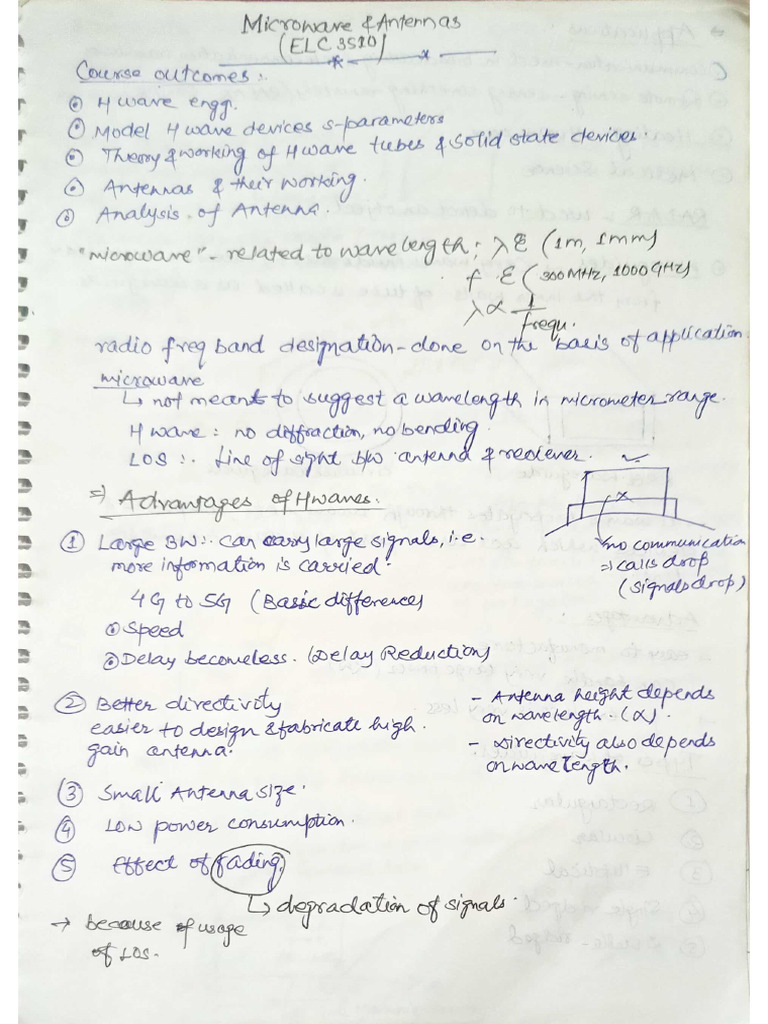 Microwave & Antennas
(ELC 3510)
Course outcomes:.
⊙ μwave engg.
⊙ Model μwave devices s-parameters
⊙ Theory & working of μwave tubes & solid state devices.
⊙ Antennas & their working.
⊙ Analysis of Antenna.
"microwave" - related to wavelength: λ ∈ (1m, 1mm)
f ∈ (300MHz, 1000GHz)
λ ∝ 1/frequ.
radio freq band designation - done on the basis of application.
microwave
↳ not meant to suggest a wavelength in micrometer range.
μwave: no diffraction, no bending.
LOS :. Line of sight b/w antenna & reciever.
⇒ Advantages of μwaves.
① Large BW:. can carry large signals, i.e.
more information is carried.
no communication
⇒ calls drop
(signals drop)
4G to 5G (Basic differences)
⊙ Speed
⊙ Delay becomes less. (Delay Reduction)
② Better directivity
easier to design & fabricate high
gain antenna.
- Antenna height depends
on wavelength. (∝).
- Directivity also depends
on wavelength.
③ Small Antenna size.
④ Low power consumption.
⑤ Effect of fading.
↳ degradation of signals.
→ because of usage
of LOS.